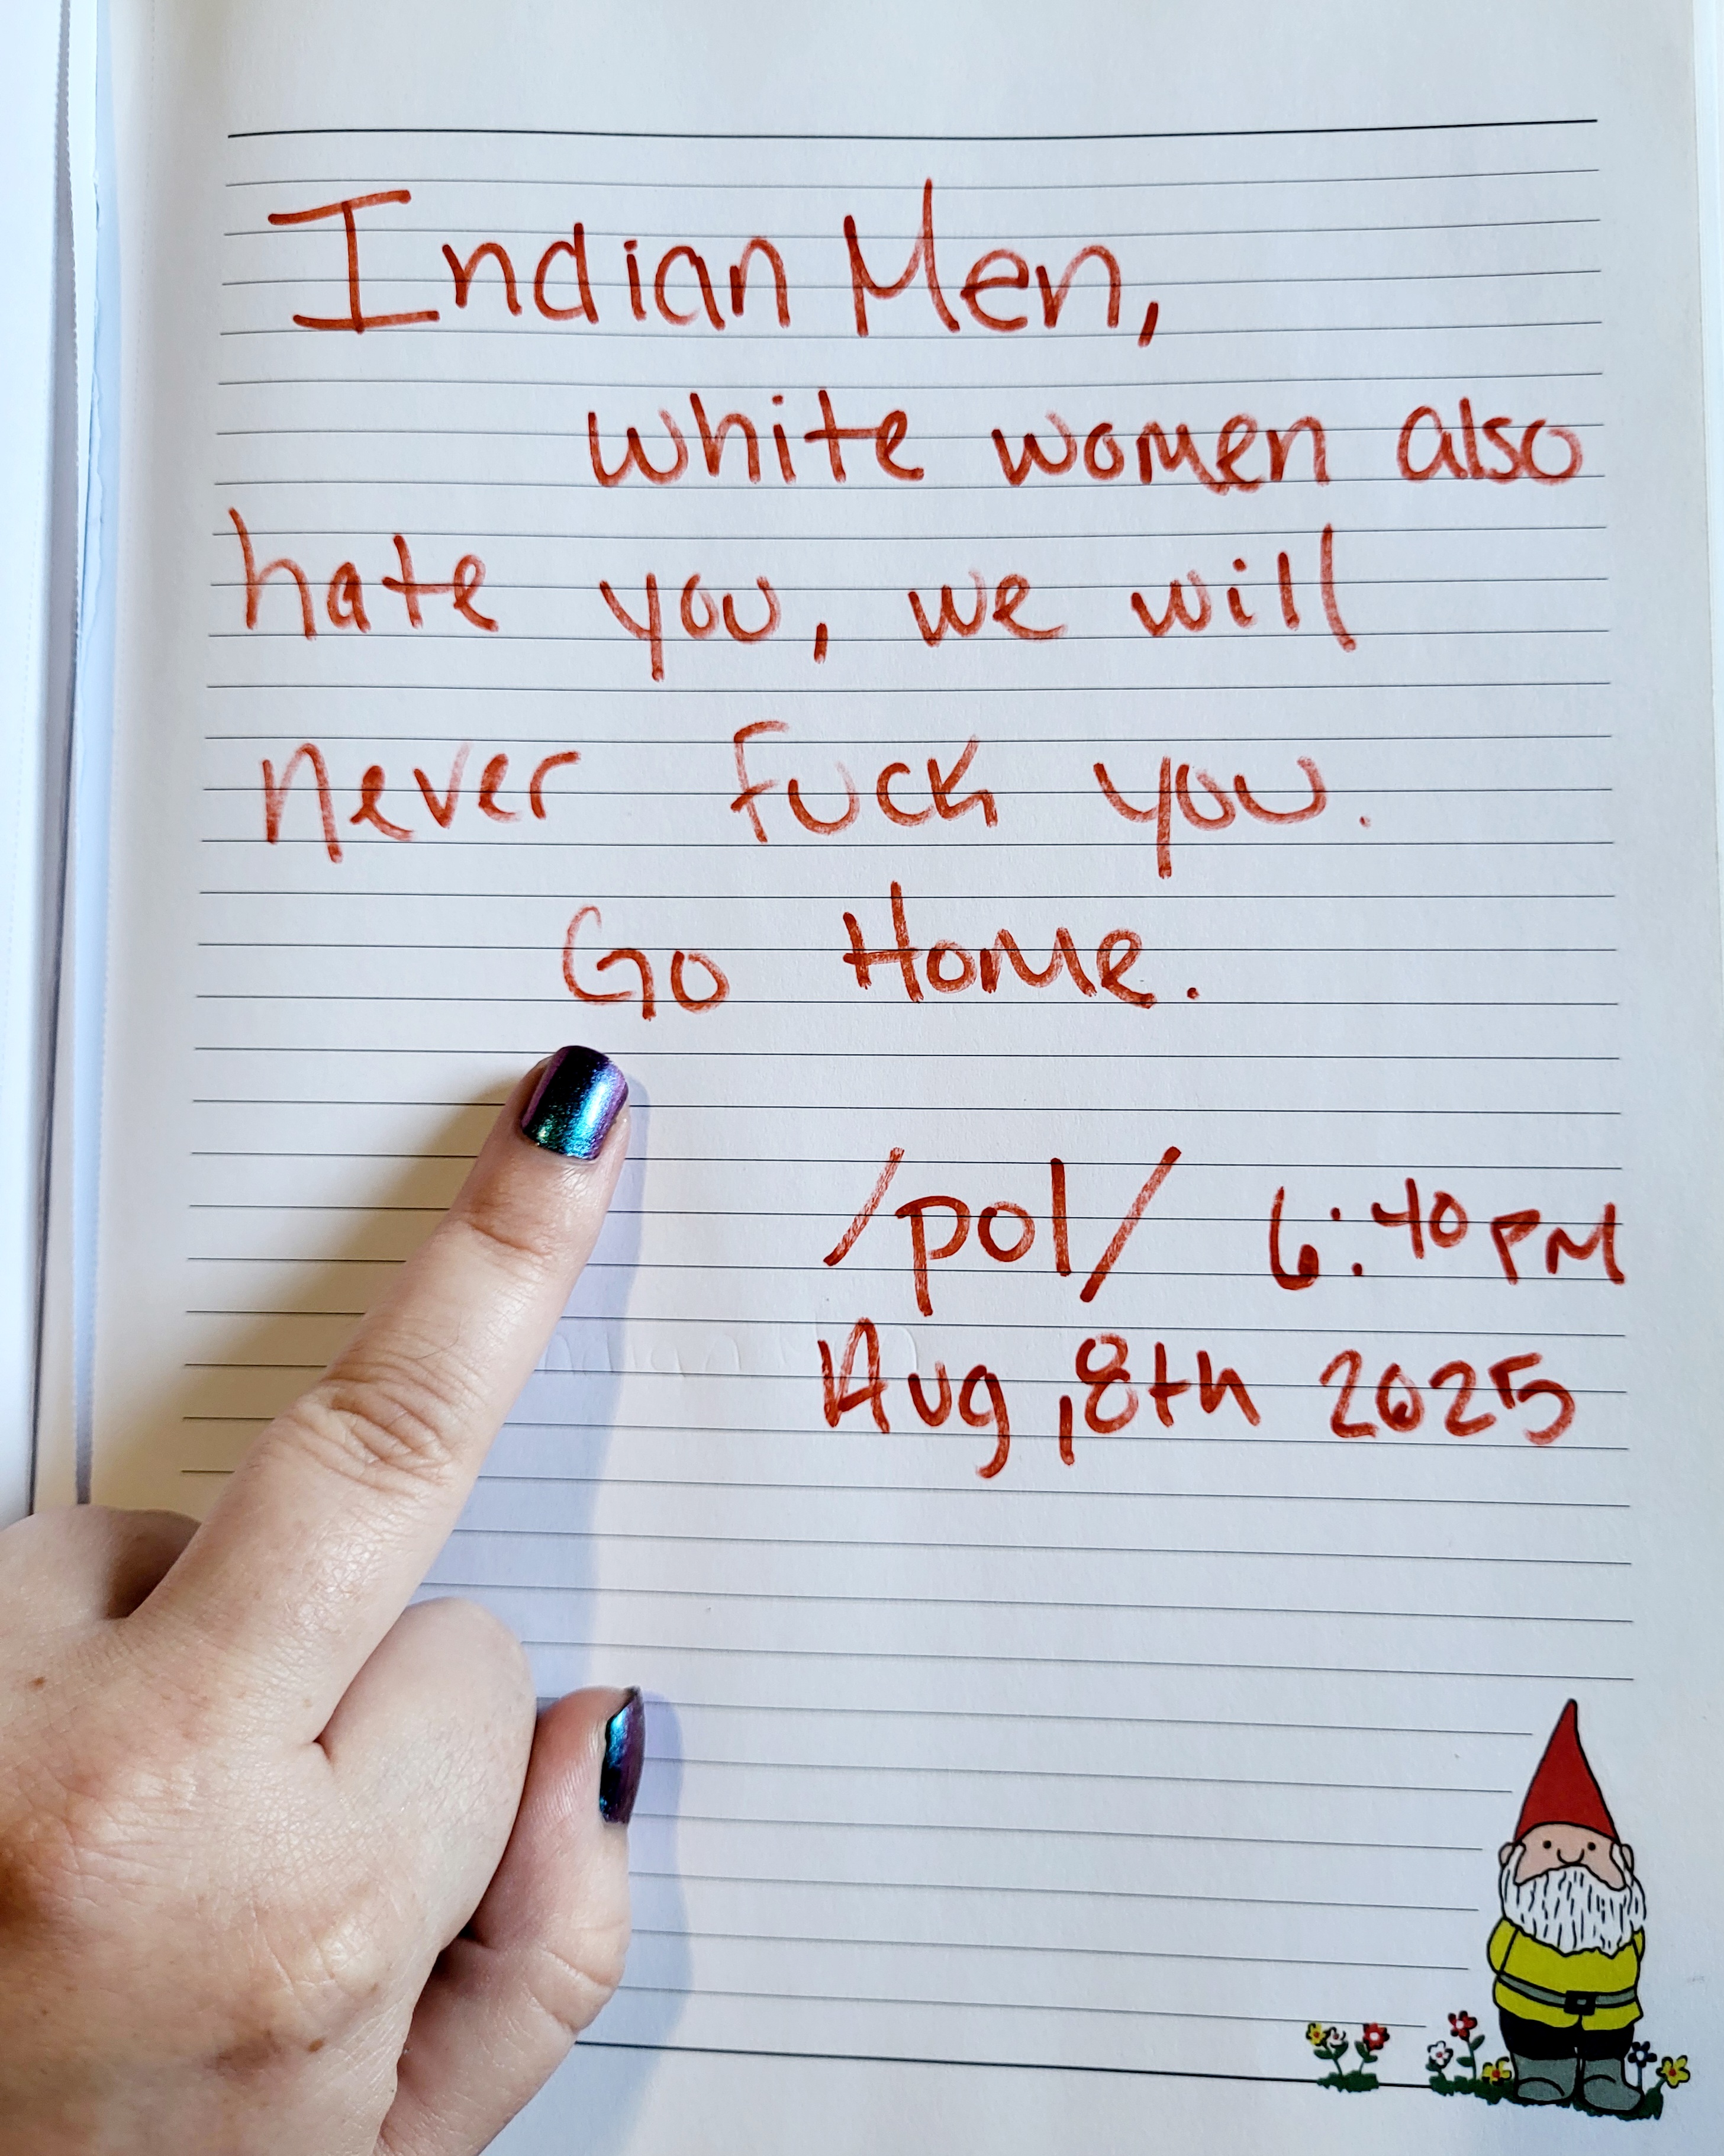 Indian Men,
white women also
hate you, we will
never fuck you.
Go Home.
/pol/ 6:40 PM
Aug, 8th 2025